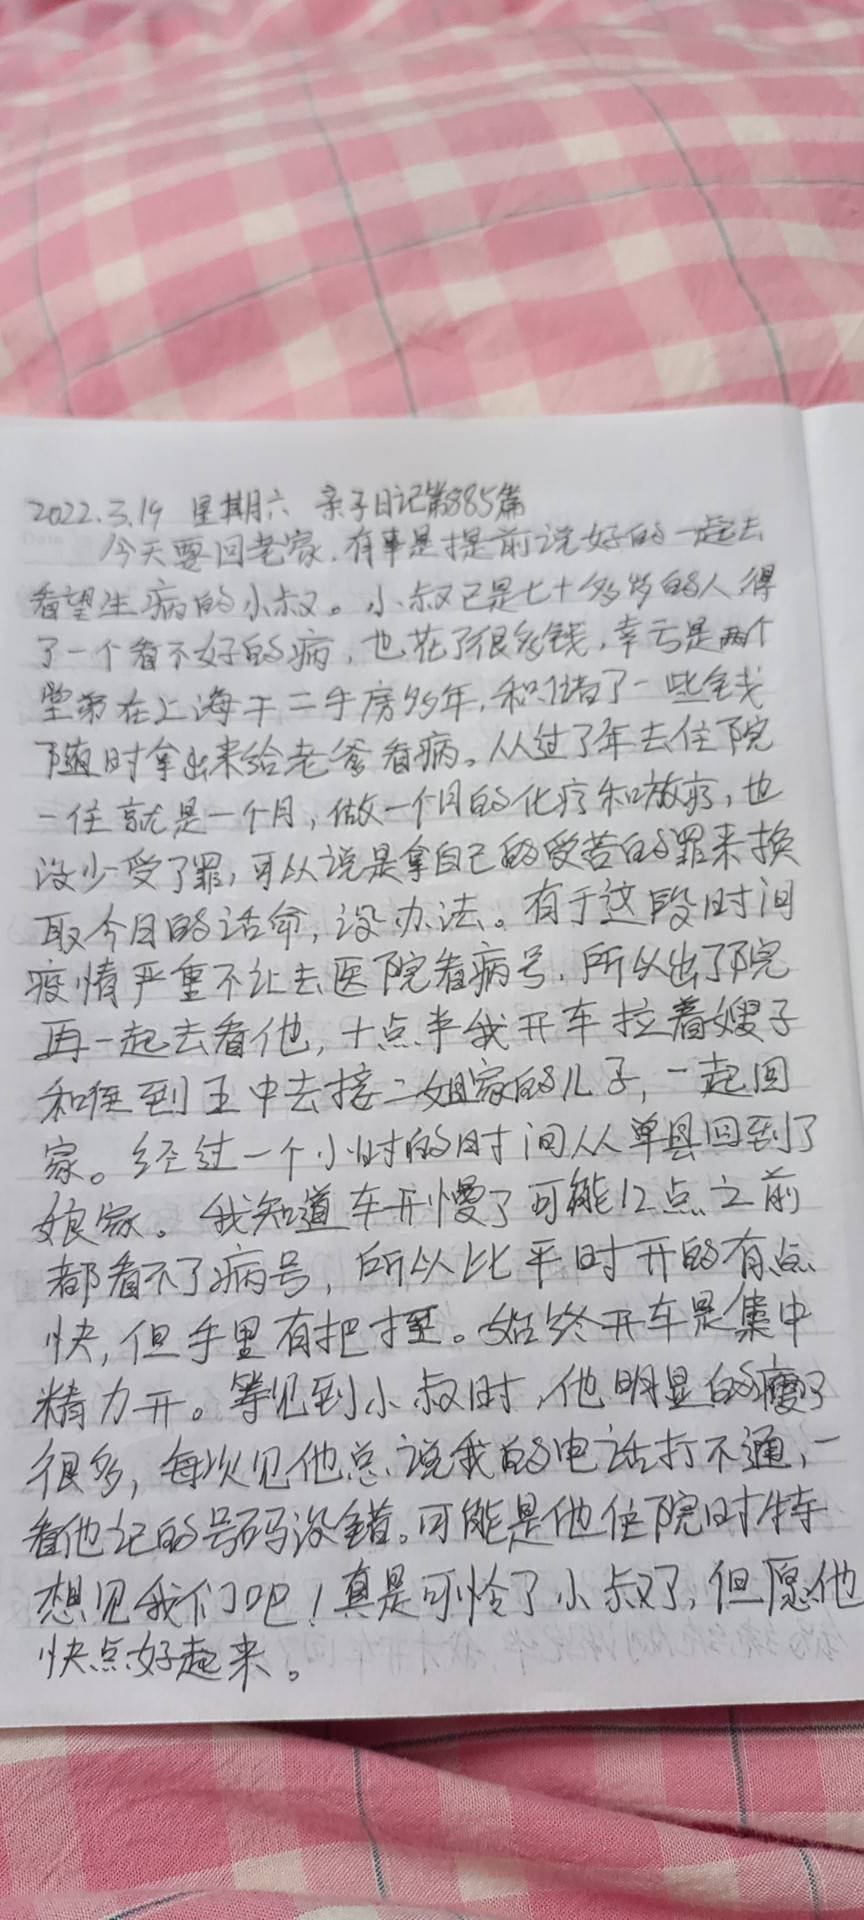 2022.3.19 星期六 亲子日记第885篇
今天要回老家,有事是提前说好的一起去
看望生病的小叔。小叔已是七十多岁的人得
了一个看不好的病,也花了很多钱,幸亏是两个
堂弟在上海干二手房多年,积借了一些钱
随时拿出来给老爹看病。从过了年去住院
一住就是一个月,做一个月的化疗和放疗,也
没少受了罪,可以说是拿自己的受苦的罪来换
取今日的活命,没办法。有于这段时间
疫情严重不让去医院看病号,所以出了院
再一起去看他,十点半我开车拉着嫂子
和侄到王中去接二姐家的儿子,一起回
家。经过一个小时的时间从单县回到了
娘家。我知道车开慢了可能12点之前
都看不了病号,所以比平时开的有点
快,但手里有把握。始终开车是集中
精力开。等见到小叔时,他明显的瘦了
很多,每次见他总说我的电话打不通,一
看他记的号码没错。可能是他住院时特
想见我们吧!真是可怜了小叔了,但愿他
快点好起来。